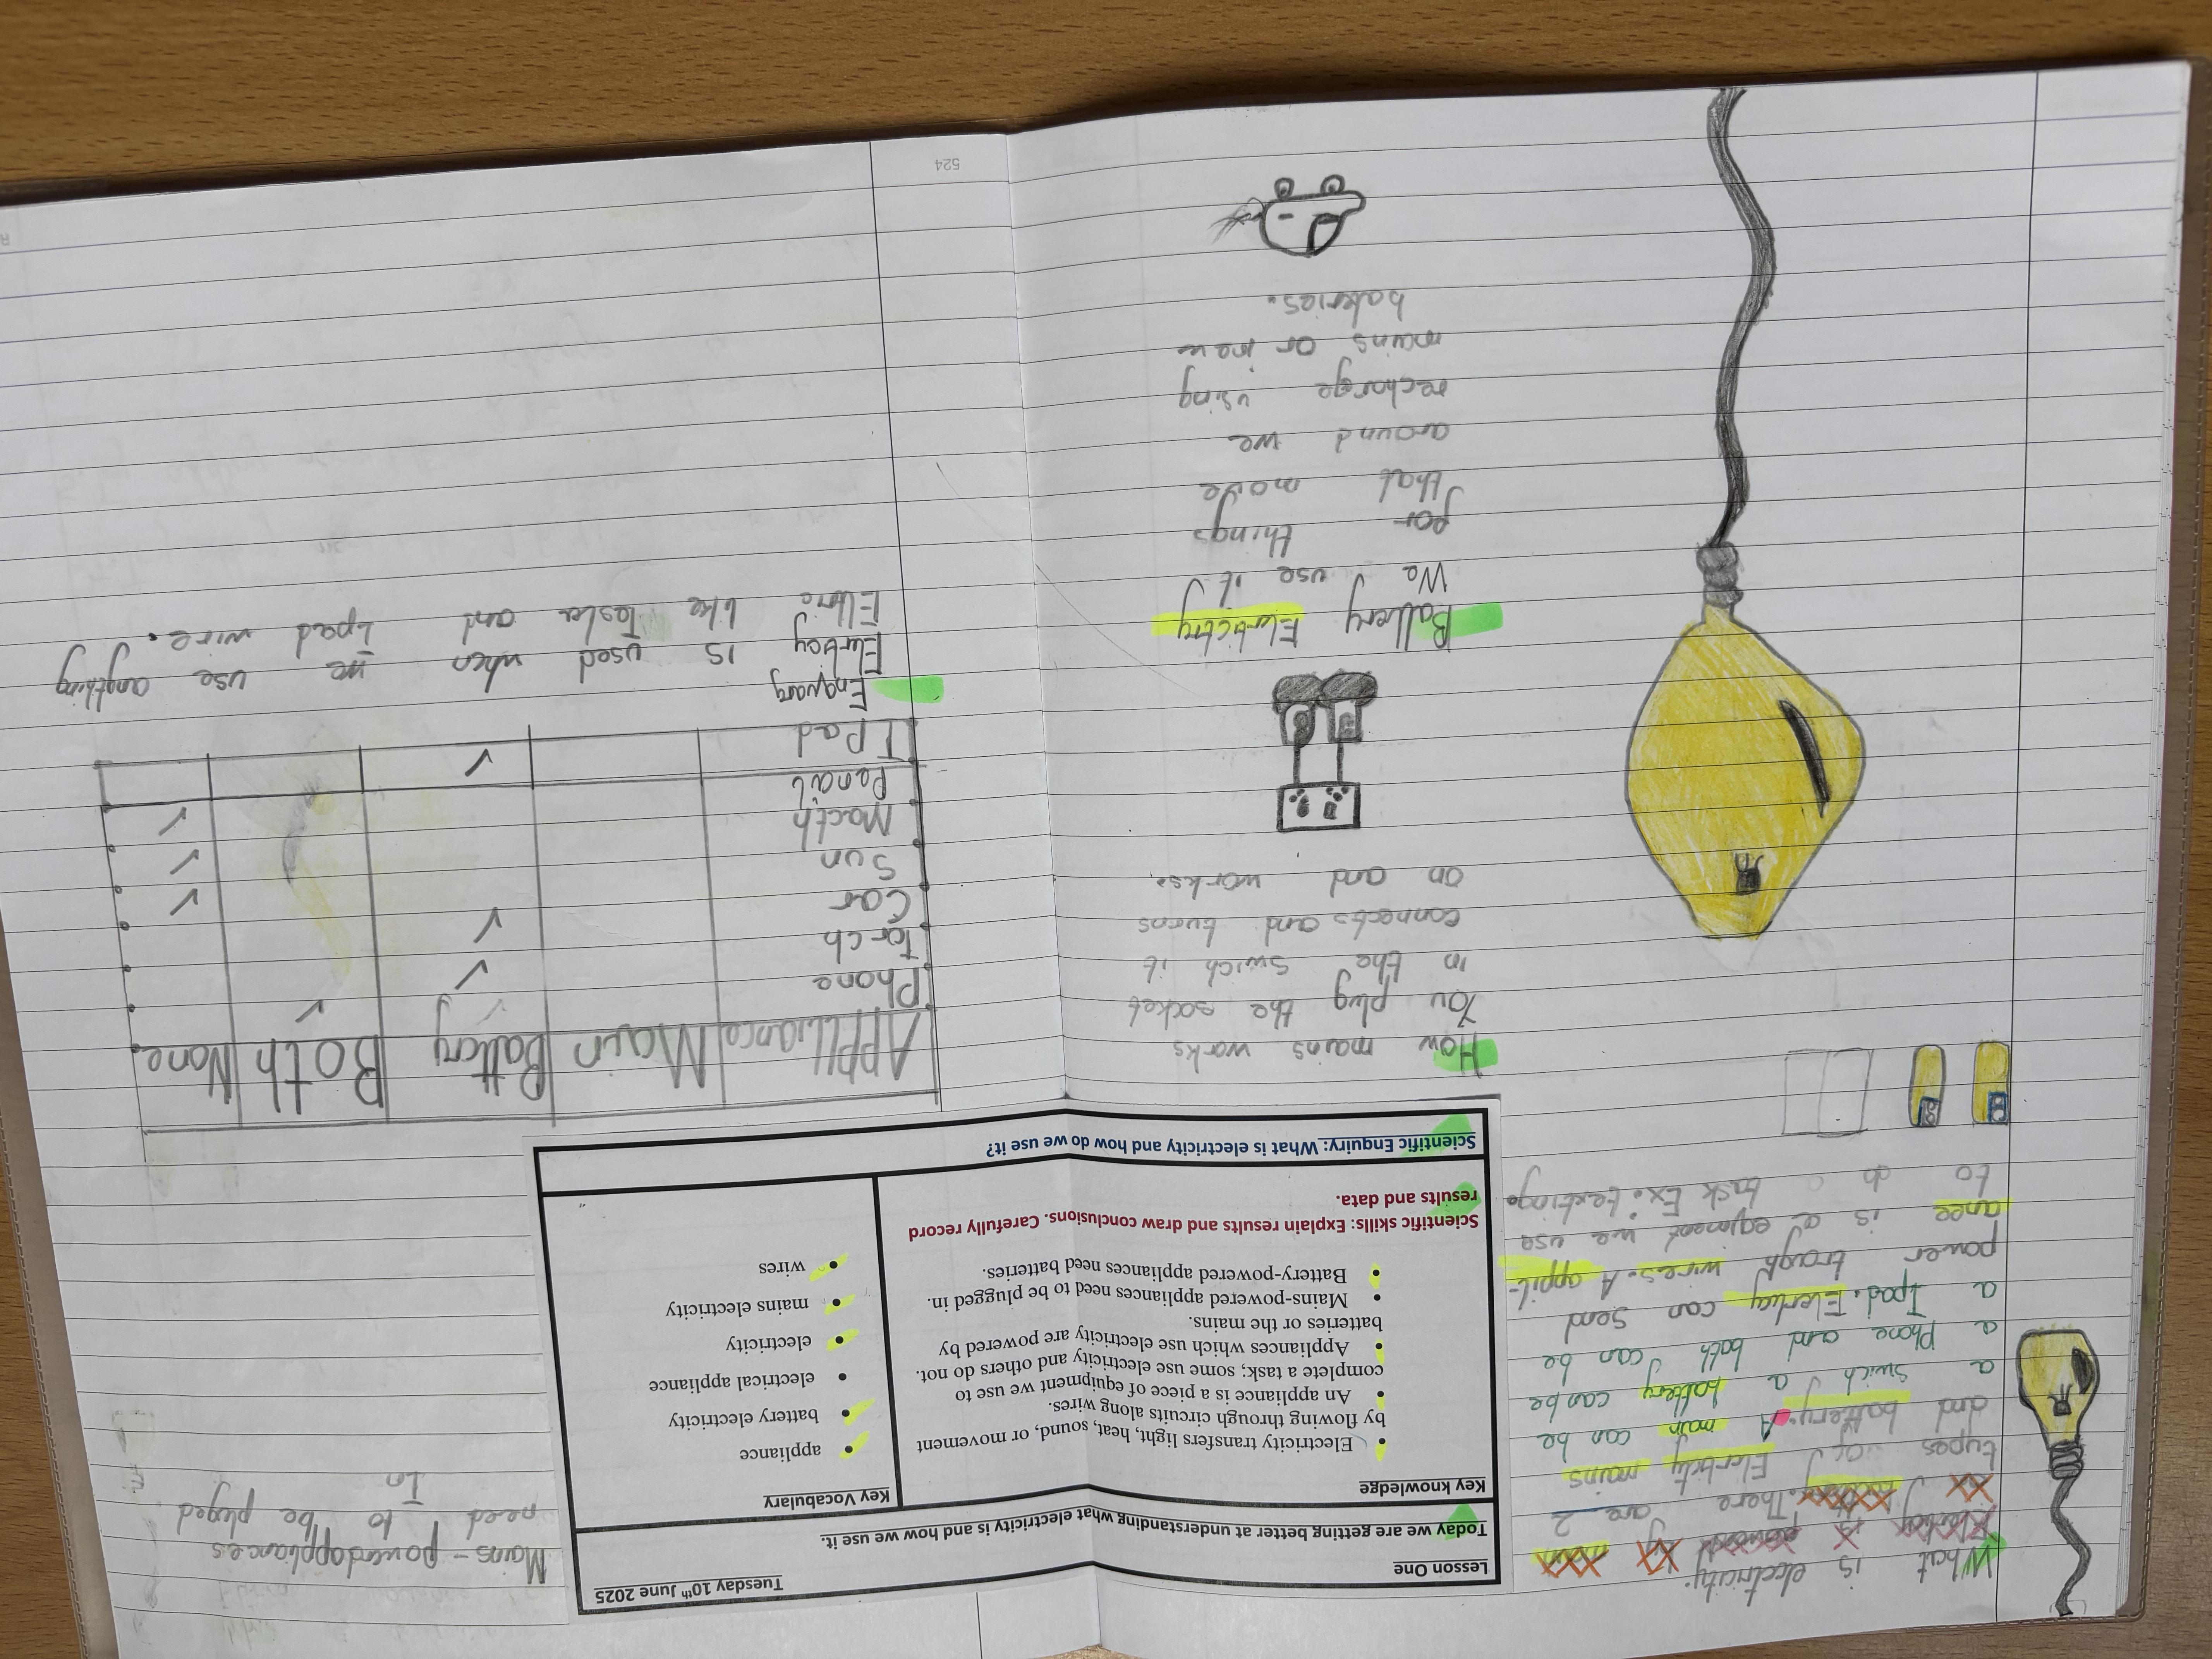 What is electricity.
types of Elertcity mains
and battery. A main can be
a swich a battery can be
a Phone and both can be
a Ipad. Elertcity can send
power trough wires. A appli-
ance is a eqiment we use
to do task Ex: texting.
Lesson One
Tuesday 10th June 2025
Today we are getting better at understanding what electricity is and how we use it.
Key knowledge
• Electricity transfers light, heat, sound, or movement
by flowing through circuits along wires.
• An appliance is a piece of equipment we use to
complete a task; some use electricity and others do not.
• Appliances which use electricity are powered by
batteries or the mains.
• Mains-powered appliances need to be plugged in.
• Battery-powered appliances need batteries.
Scientific skills: Explain results and draw conclusions. Carefully record
results and data.
Key Vocabulary
• appliance
• battery electricity
• electrical appliance
• electricity
• mains electricity
• wires
Scientific Enquiry: What is electricity and how do we use it?
Mains-powerdappliances
need to be pluged
In
How mains works
You plug the socket
in the swich it
connects and turns
on and works.
Battery Elertictry
We use it
for things
that move
around we
recharge using
mains or new
batteries.
APPLiance Main Battery Both None
Phone ✓
Torch ✓
Car ✓
Sun ✓
Macth ✓
Pencil ✓
IPad ✓
Enquary
is used when we use anything
like Tosta and Ipad wire.
524